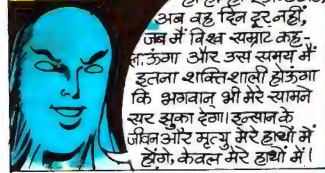 अब वह दिन दूर नहीं,
जब मैं विश्व सम्राट कह-
लाऊंगा और उस समय मैं
इतना शक्तिशाली होऊंगा
कि भगवान् भी मेरे सामने
सर झुका देगा। इन्सान के
जीवन और मृत्यु मेरे हाथों में
होंगे, केवल मेरे हाथों में।